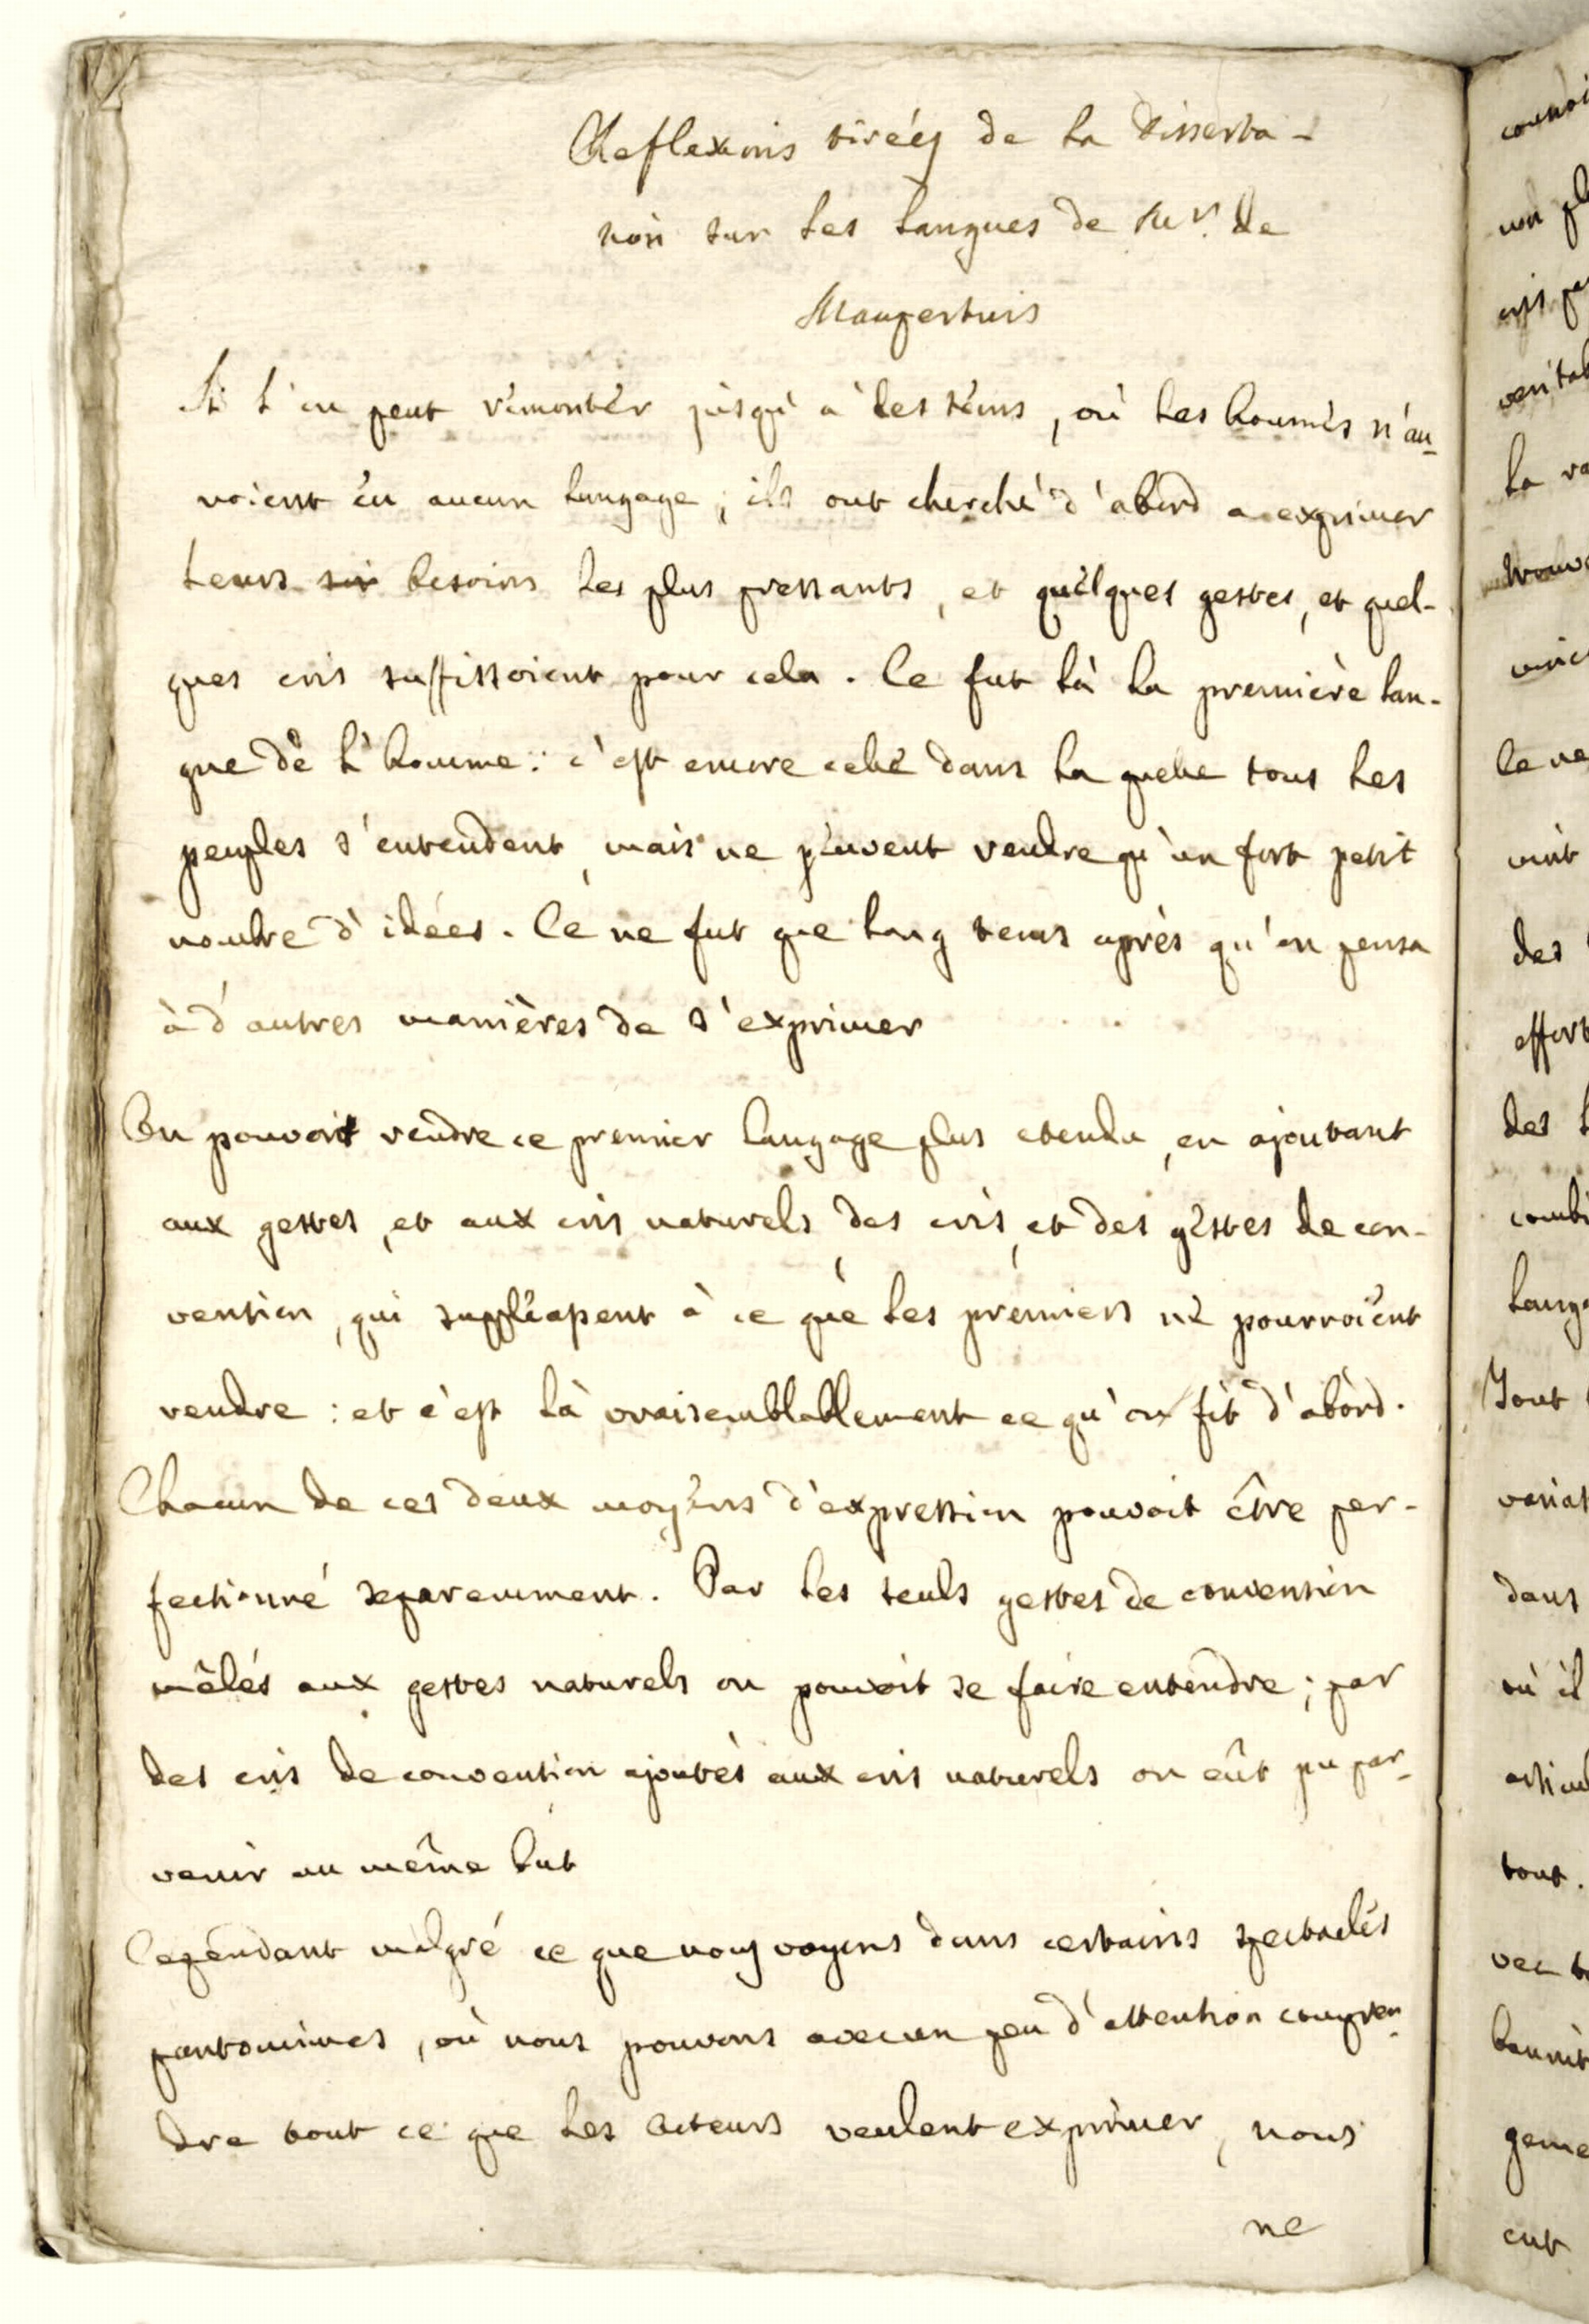 Reflexions tirées de la Disserta-
tion sur les langues de Mr. de
Maupertuis
Si l'on peut remonter jusqu'à ces tems, où les hommes n'au-
roient eu aucun langage; ils ont cherché d'abord a exprimer
leurs besoins les plus pressants, et quelques gestes, et quel-
ques cris suffissoient pour cela. Ce fut là la première lan-
gue de l'homme: c'est encore celle dans la quelle tous les
peuples s'entendent, mais ne peuvent rendre qu'un fort petit
nombre d'idées. Ce ne fut que long tems après qu'on pensa
à d'autres manières de s'exprimer
On pouvoit rendre ce premier langage plus etendu, en ajoutant
aux gestes, et aux cris naturels, des cris, et des gestes de con-
vention, qui suppléassent à ce que les premiers ne pourroient
rendre: et c'est là vraisemblablement ce qu'on fit d'abord.
Chacun de ces deux moyens d'expression pouvoit être per-
fectionné separemment. Par les seuls gestes de convention
mêlés aux gestes naturels on pouvoit se faire entendre; par
des cris de convention ajoutés aux cris naturels on eût pu par-
venir au même but
Cependant malgré ce que nous voyons dans certains spectacles
pantomimes, où nous pouvons avec un peu d'attention compren-
dre tout ce que les Acteurs veulent exprimer, nous
ne